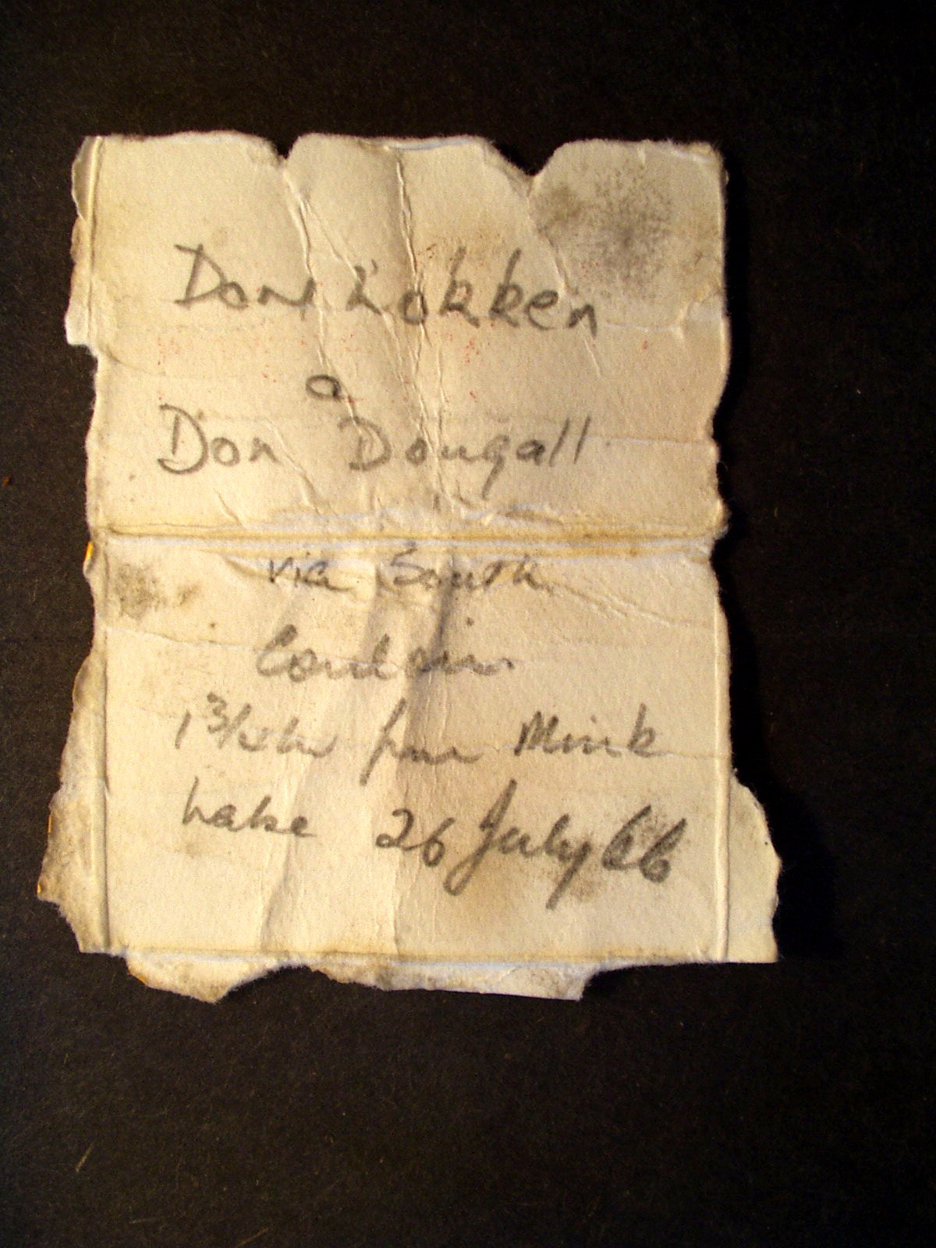 Don Lokken
&
Don Dougall
via South
Couloir
1 3/4 hr from Mink
Lake 26 July 66